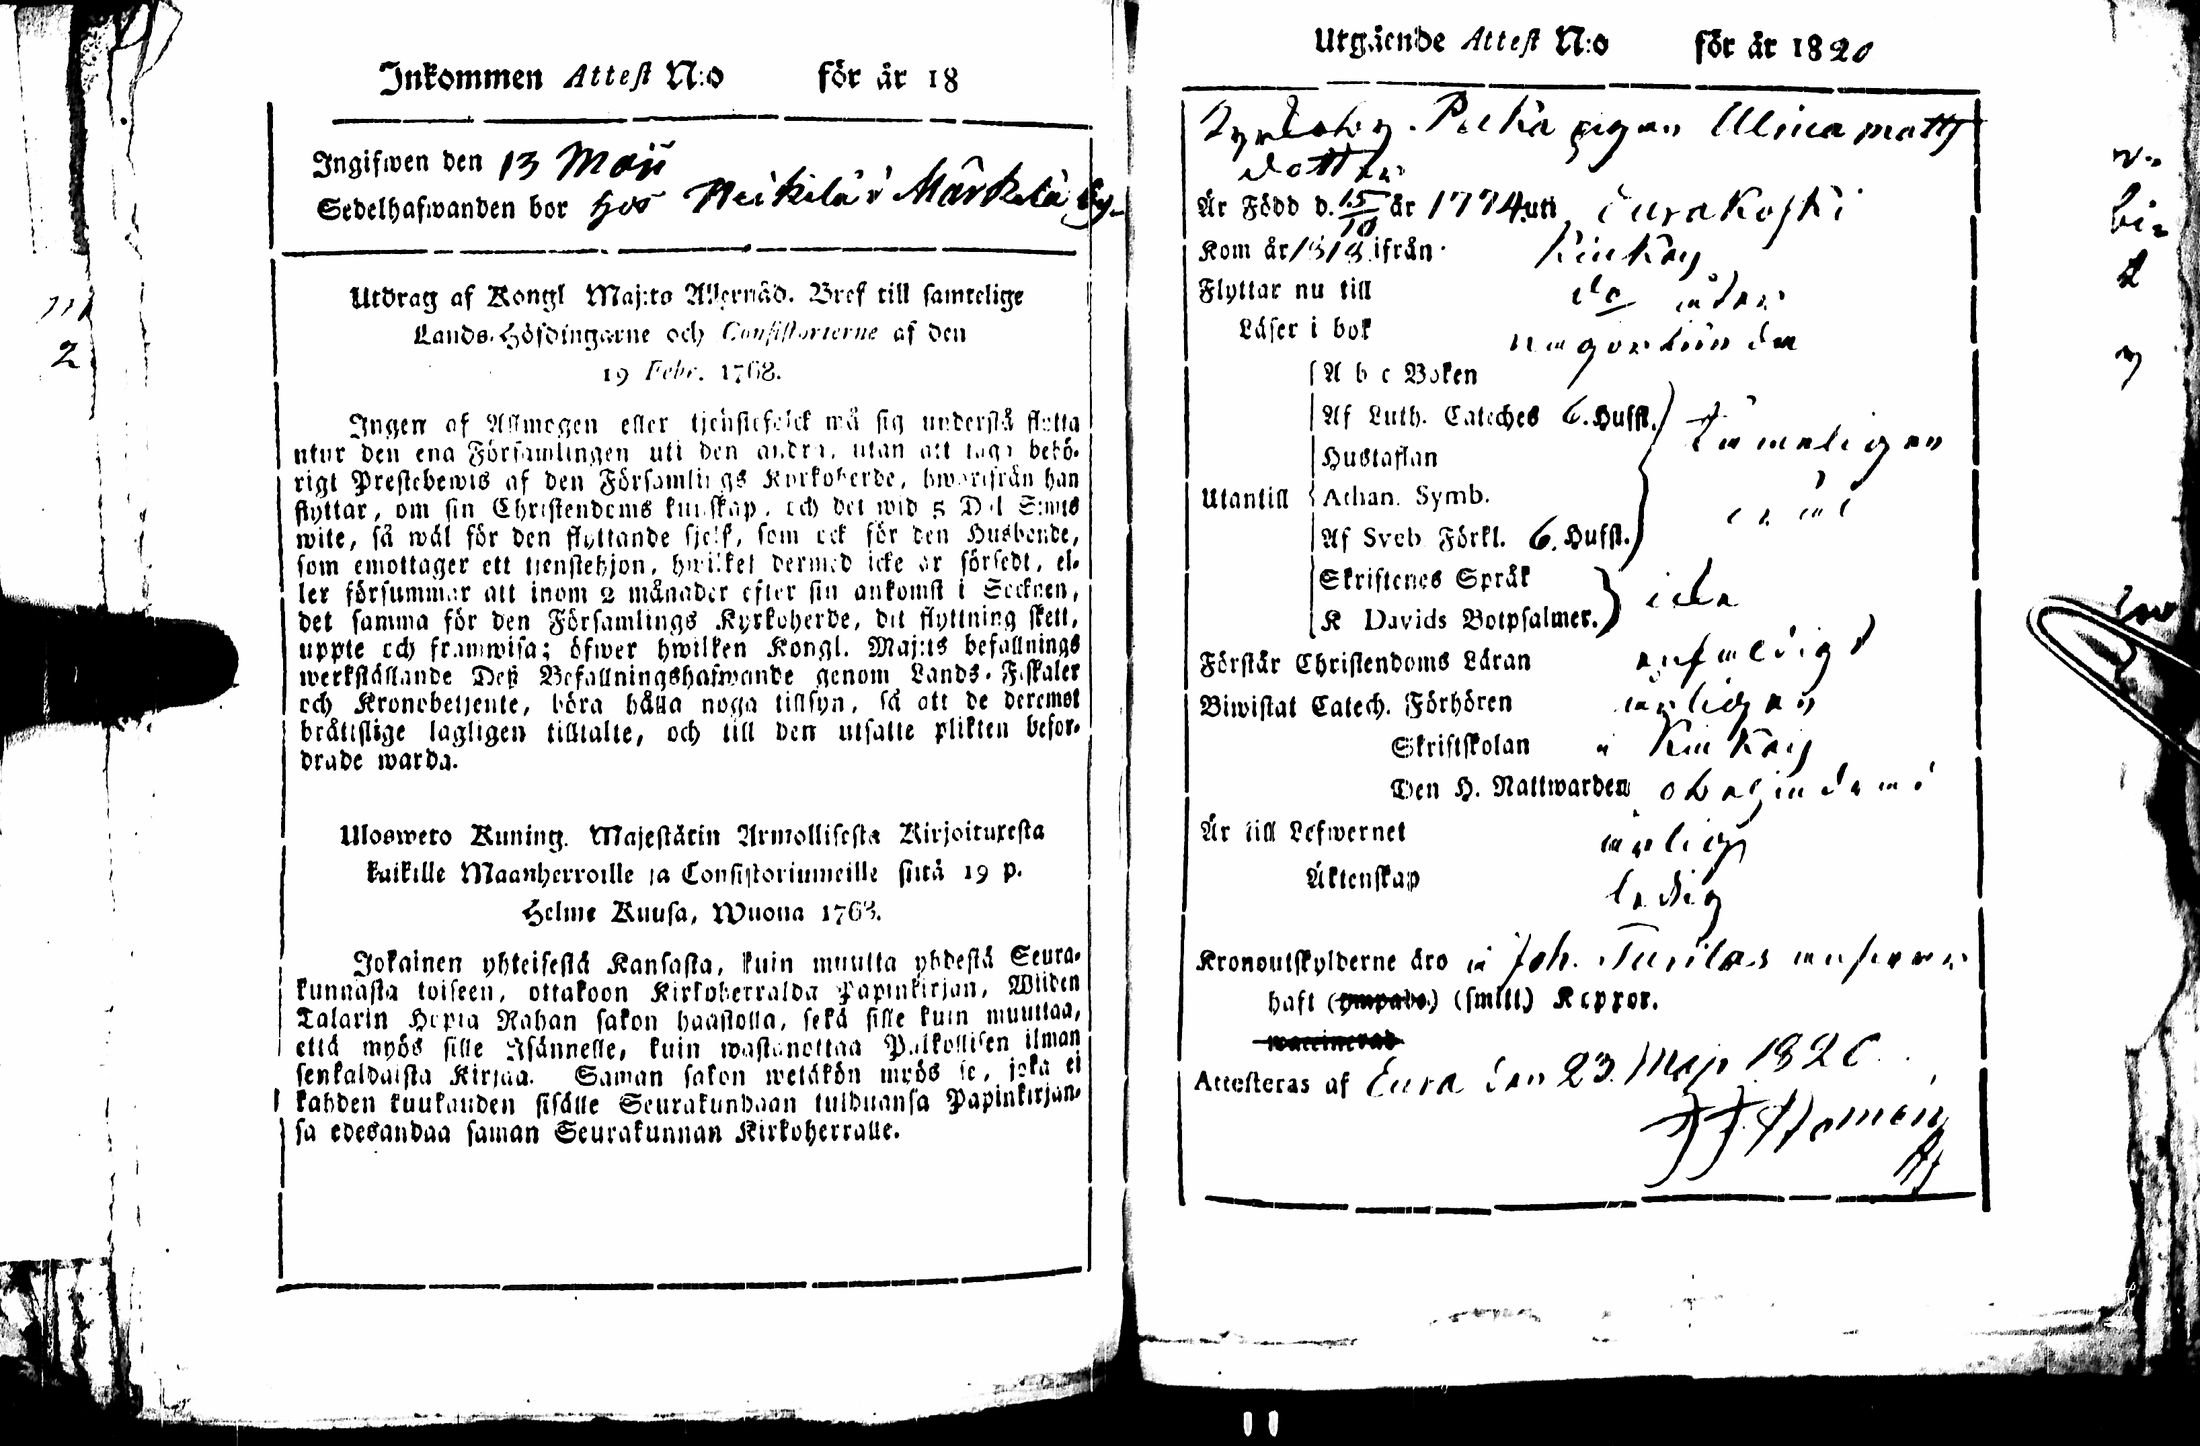 Inkommen Attest N:o för år 18
Ingifwen den 13 Maij
Sedelhafwanden bor hos Heikilä i Markela by
Utdrag af Kongl Maj:ts Allernåd. Bref till samtelige
Lands-Höfdingarne och Consistorierne af den
19 Febr. 1768.
Ingen af Allmogen eller tjenstefolck må sig understå flytta
utur den ena Församlingen uti den andra, utan att taga behö-
rigt Prestebewis af den Församlings Kyrkoherde, hwarifrån han
flyttar, om sin Christendoms kunskap, och det wid 5 Dal S:mts
wite, så wäl för den flyttande sjelf, som ock för den Husbonde,
som emottager ett tjenstehjon, hwilket dermed icke är försedt, el-
ler försummar att inom 2 månader efter sin ankomst i Socknen,
det samma för den Församlings Kyrkoherde, dit flyttning skett,
uppte och framwisa; öfwer hwilken Kongl. Maj:ts befallnings
werkställande Deß Befallningshafwande genom Lands-Fiskaler
och Kronobetjente, böra hålla noga tillsyn, så att de deremot
bråttslige lagligen tilltalte, och till den utsatte plikten befor-
drade warda.
Ulosweto Kuning. Majestätin Armollisesta Kirjoituxesta
kaikille Maanherroille ja Consistoriumeille siitä 19 p.
Helme Kuusa, Wuona 1768.
Jokainen yhteisestä Kansasta, kuin muutta yhdestä Seura-
kunnasta toiseen, ottakoon Kirkoherralda Papinkirjan, Wiiden
Talarin Hopia Rahan sakon haastolla, sekä sille kuin muuttaa,
että myös sille Isännelle, kuin wastanottaa Palkollisen ilman
senkaldaista Kirjaa. Saman sakon wetäkön myös se, joka ei
kahden kuukauden sisälle Seurakundaan tulduansa Papinkirjan-
sa edesandaa saman Seurakunnan Kirkoherralle.
Utgående Attest N:o för år 1820
pigan Ulrica matts
dotter
Är Född d. 15/10 år 1774 uti Eurakoski
Kom år 1818 ifrån Kiukais
Flyttar nu till do åter
Läser i bok någorlunda
A b c Boken
Af Luth. Catechés 6. Hufst. tämmeligen
Hustaflan
Utantill Athan. Symb.
Af Sveb Förkl. 6. Hufst.
Skriftenes Språk icke
K Davids Botpsalmer.
Förstår Christendoms Läran enfaldigt
Biwistat Catech. Förhören årligen
Skriftskolan i Kiukais
Den H. Nattwarden obehindrad
Är till Lefwernet ärlig
Äktenskap ledig
Kronoutskylderne äro i Joh.
haft (ympade) (smitt) Koppor.
waccinerad
Attesteras af Eura den 23 Maji 1820